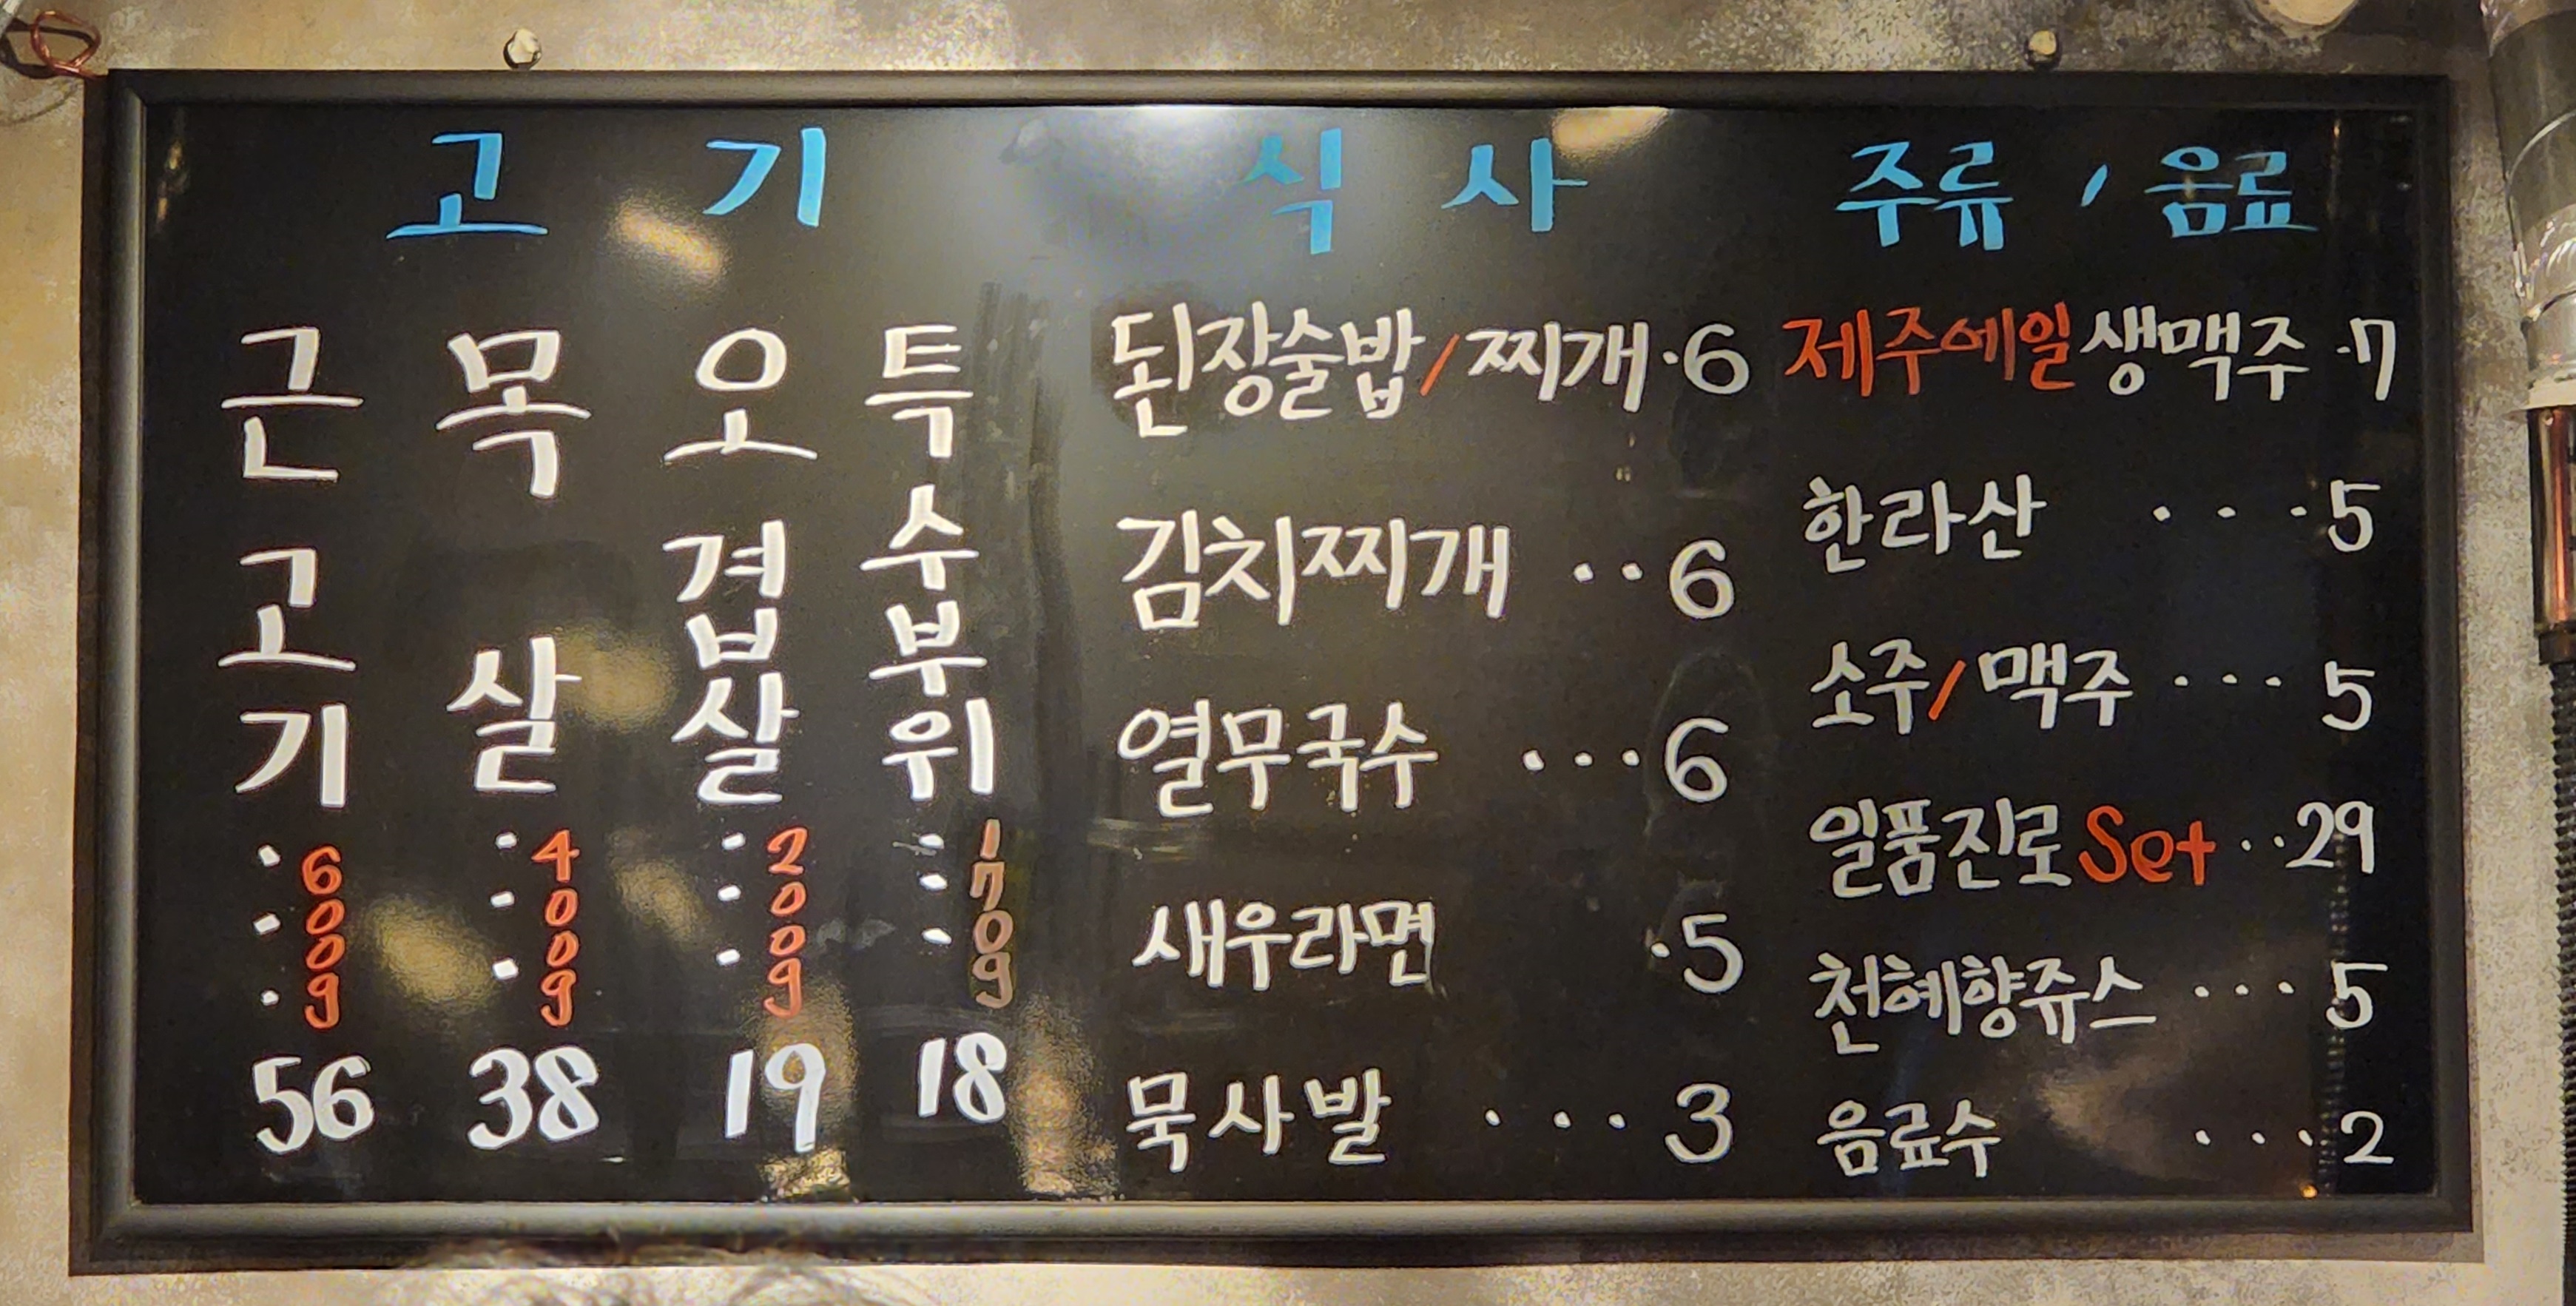 고기
근고기 600g 56
목살 400g 38
오겹살 200g 19
특수부위 170g 18
식사
된장술밥/찌개·6
김치찌개 ··6
열무국수 ···6
새우라면 ·5
묵사발 ···3
주류, 음료
제주에일생맥주·7
한라산 ···5
소주/맥주 ···5
일품진로Set ··29
천혜향쥬스 ···5
음료수 ···2